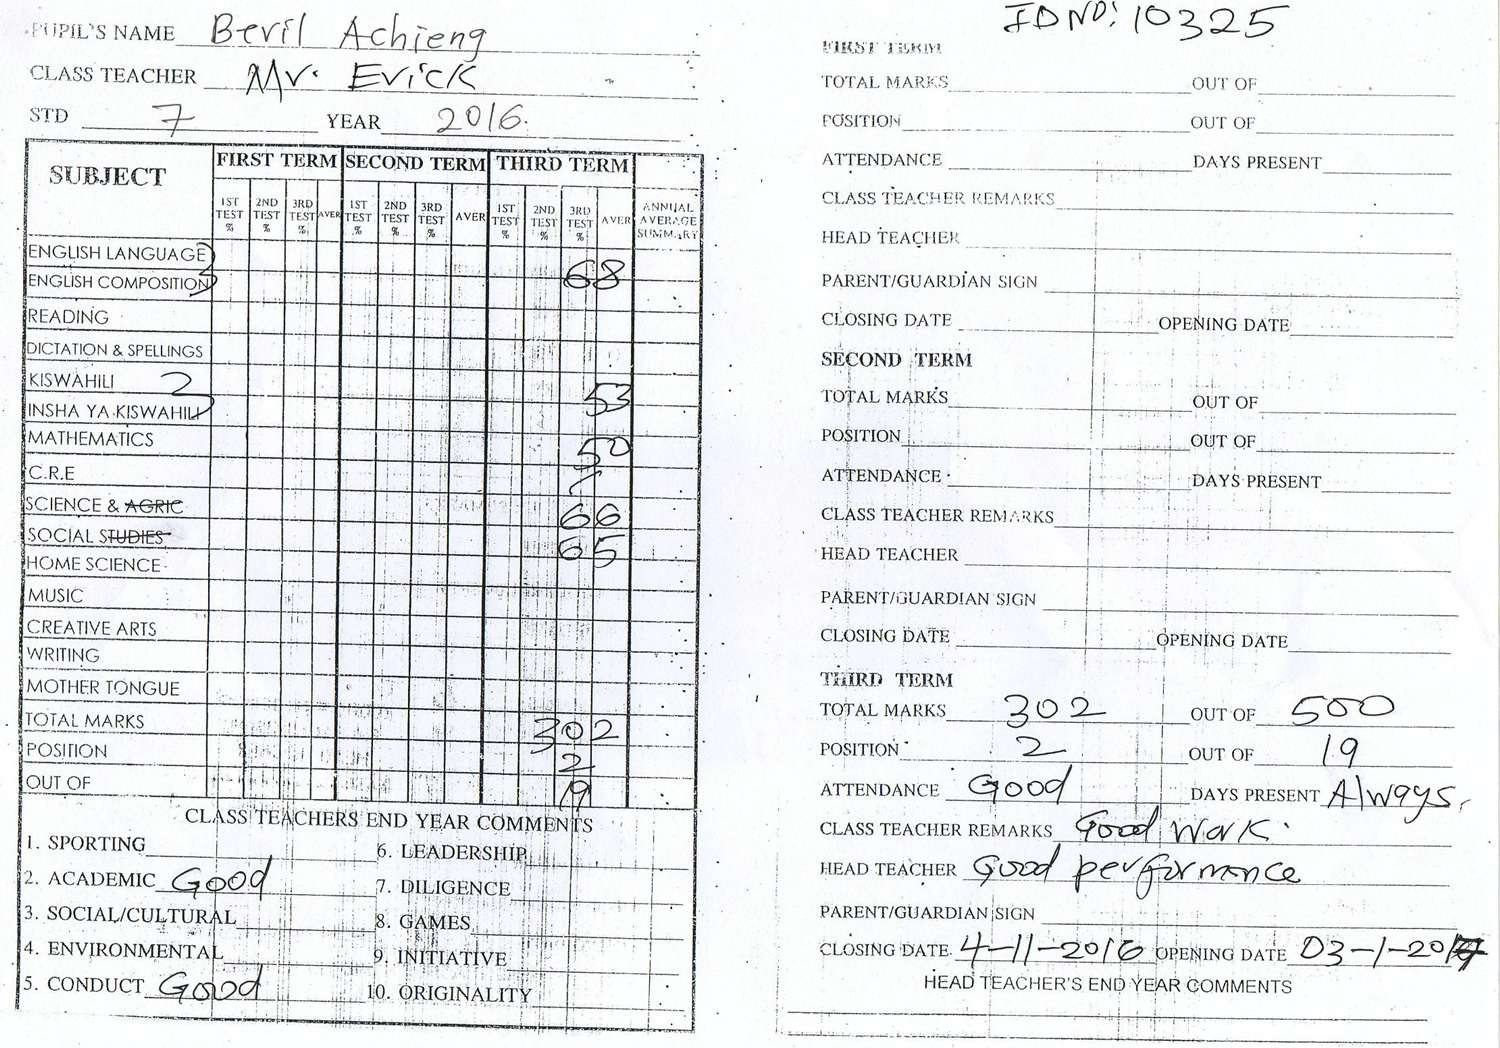 PUPIL'S NAME Bevil Achieng
CLASS TEACHER Mr. Evick
STD 7 YEAR 2016.
SUBJECT FIRST TERM SECOND TERM THIRD TERM
1ST TEST % 2ND TEST % 3RD TEST % AVER 1ST TEST % 2ND TEST % 3RD TEST % AVER 1ST TEST % 2ND TEST % 3RD TEST % AVER ANNUAL AVERAGE SUMMARY
ENGLISH LANGUAGE
ENGLISH COMPOSITION 68
READING
DICTATION & SPELLINGS
KISWAHILI
INSHA YA KISWAHILI 53
MATHEMATICS 50
C.R.E
SCIENCE & AGRIC 66
SOCIAL STUDIES 65
HOME SCIENCE
MUSIC
CREATIVE ARTS
WRITING
MOTHER TONGUE
TOTAL MARKS 302
POSITION 2
OUT OF 19
CLASS TEACHERS END YEAR COMMENTS
1. SPORTING 6. LEADERSHIP
2. ACADEMIC Good 7. DILIGENCE
3. SOCIAL/CULTURAL 8. GAMES
4. ENVIRONMENTAL 9. INITIATIVE
5. CONDUCT Good 10. ORIGINALITY
ID NO: 10325
FIRST TERM
TOTAL MARKS OUT OF
POSITION OUT OF
ATTENDANCE DAYS PRESENT
CLASS TEACHER REMARKS
HEAD TEACHER
PARENT/GUARDIAN SIGN
CLOSING DATE OPENING DATE
SECOND TERM
TOTAL MARKS OUT OF
POSITION OUT OF
ATTENDANCE DAYS PRESENT
CLASS TEACHER REMARKS
HEAD TEACHER
PARENT/GUARDIAN SIGN
CLOSING DATE OPENING DATE
THIRD TERM
TOTAL MARKS 302 OUT OF 500
POSITION 2 OUT OF 19
ATTENDANCE Good DAYS PRESENT Always.
CLASS TEACHER REMARKS Good work.
HEAD TEACHER Good performance
PARENT/GUARDIAN SIGN
CLOSING DATE 4-11-2016 OPENING DATE 03-1-2017
HEAD TEACHER'S END YEAR COMMENTS